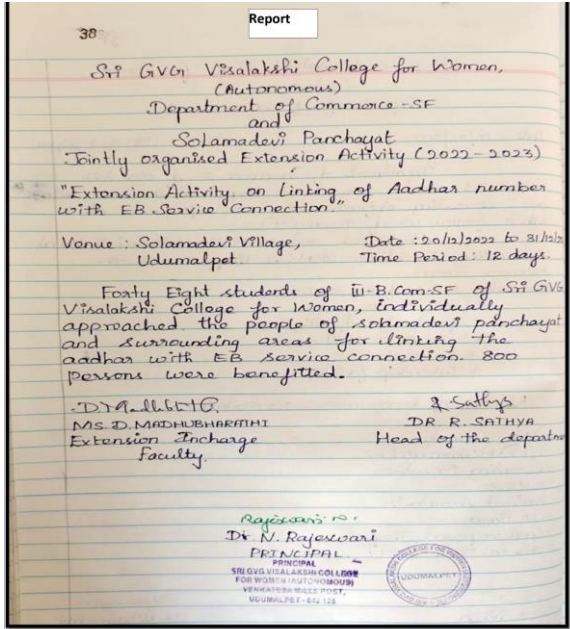 Report
38
Sri GVG Visalakshi College for Women,
(Autonomous)
Department of Commerce -SF
and
Solamadevi Panchayat
Jointly organised Extension Activity (2022-2023)
"Extension Activity on Linking of Aadhar number
with EB Service Connection."
Venue : Solamadevi Village, Date : 20/12/2022 to 31/12/2
Udumalpet Time Period : 12 days.
Forty Eight students of III-B.Com-SF of Sri GVG
Visalakshi College for Women, individually
approached the people of solamadevi panchayat
and surrounding areas for linking the
aadhar with EB service connection. 800
persons were benefitted.
R. Sathya
MS. D. MADHUBHARATHI DR R. SATHYA
Extension Incharge Head of the departme
Faculty.
Rajeswari N.
Dr N. Rajeswari
PRINCIPAL
PRINCIPAL
SRI GVG VISALAKSHI COLLEGE
FOR WOMEN (AUTONOMOUS)
VENKATESA MILLS POST,
UDUMALPET - 642 128
UDUMALPET